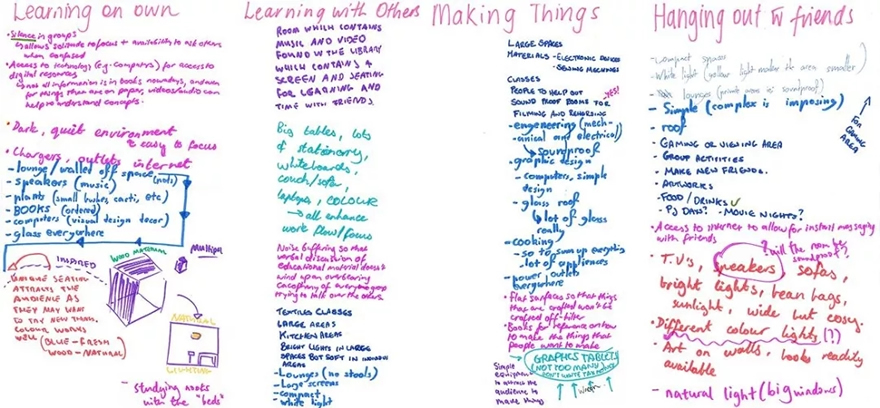 Learning on own
• Silence in groups
↳ allows solitude to focus + availability to ask others
when confused
• Access to technology (e.g. computers) for access to
digital resources
↳ not all information is in books nowadays, and even
for things that are on paper, videos/audio can
help understand concepts.
• Dark, quiet environment
↳ easy to focus
• Chargers, outlets internet
- lounge/walled off space (pods)
- speakers (music)
- plants (small bushes, cacti, etc)
- BOOKS (ordered)
- computers (visual design decor)
- glass everywhere
INSPIRED
WOOD MATERIAL
Multiple
UNIQUE SEATING
ATTRACTS THE
AUDIENCE AS
THEY MAY WANT
TO TRY NEW THINGS.
COLOUR WORKS
WELL (BLUE - FRESH
WOOD - NATURAL)
NATURAL
LIGHTING
- studying nooks
with the "beds"
Learning with Others
ROOM WHICH CONTAINS
MUSIC AND VIDEO
FOUND IN THE LIBRARY
WHICH CONTAINS A
SCREEN AND SEATING
FOR LEARNING AND
TIME WITH FRIENDS.
Big tables, lots
of stationery,
whiteboards,
couch/sofas,
laptops, COLOUR
→ all enhance
work flow/focus
Noise buffering so that
verbal discussion of
educational material doesn't
wind up an overbearing
cacophony of everyone
trying to talk over the others
TEXTING CLASSES
LARGE AREAS
KITCHEN AREAS
BRIGHT LIGHTS IN LARGE
SPACES BUT SOFT IN
AREAS
- Lounges (no stools)
- Large screens
- compact
- white light
Making Things
LARGE SPACES
MATERIALS - ELECTRONIC DEVICES
- SEWING MACHINES
CLASSES
PEOPLE TO HELP OUT
YES!
SOUND PROOF ROOMS FOR
FILMING AND REHERSING
- engeneering (mech-
anical and electrical)
↳ soundproof
- graphic design
- computers, simple
design
- glass roof
↳ lot of glass
really
- cooking
- so to sum up everything
- lot of appliances
- power outlets
everywhere
• Flat surfaces so that things
that are crafted won't be
crafted off-kilter
• Books for reference on how
to make the things that
people want to make
Simple
equipment
to access the
audience to
make things
→ GRAPHICS TABLETS
(NOT TOO MANY)
DON'T WASTE TAX MONEY
Hanging out w friends
- compact spaces
- white light (yellow light makes the area smaller)
- lounges (private areas is soundproof)
- Simple (complex is imposing)
- roof
FOR GAMING AREA
- GAMING OR VIEWING AREA
- GROUP ACTIVITIES
- MAKE NEW FRIENDS.
- ARTWORKS
- FOOD/DRINKS ✓
- PJ DAYS? - MOVIE NIGHTS?
• Access to internet to allow for instant messaging
with friends
? will the room be
soundproof?
• T.V's, speakers, sofas,
bright lights, bean bags,
sunlight, wide but cosy.
• Different colour lights (?)
• Art on walls, books readily
available
- natural light (big windows)